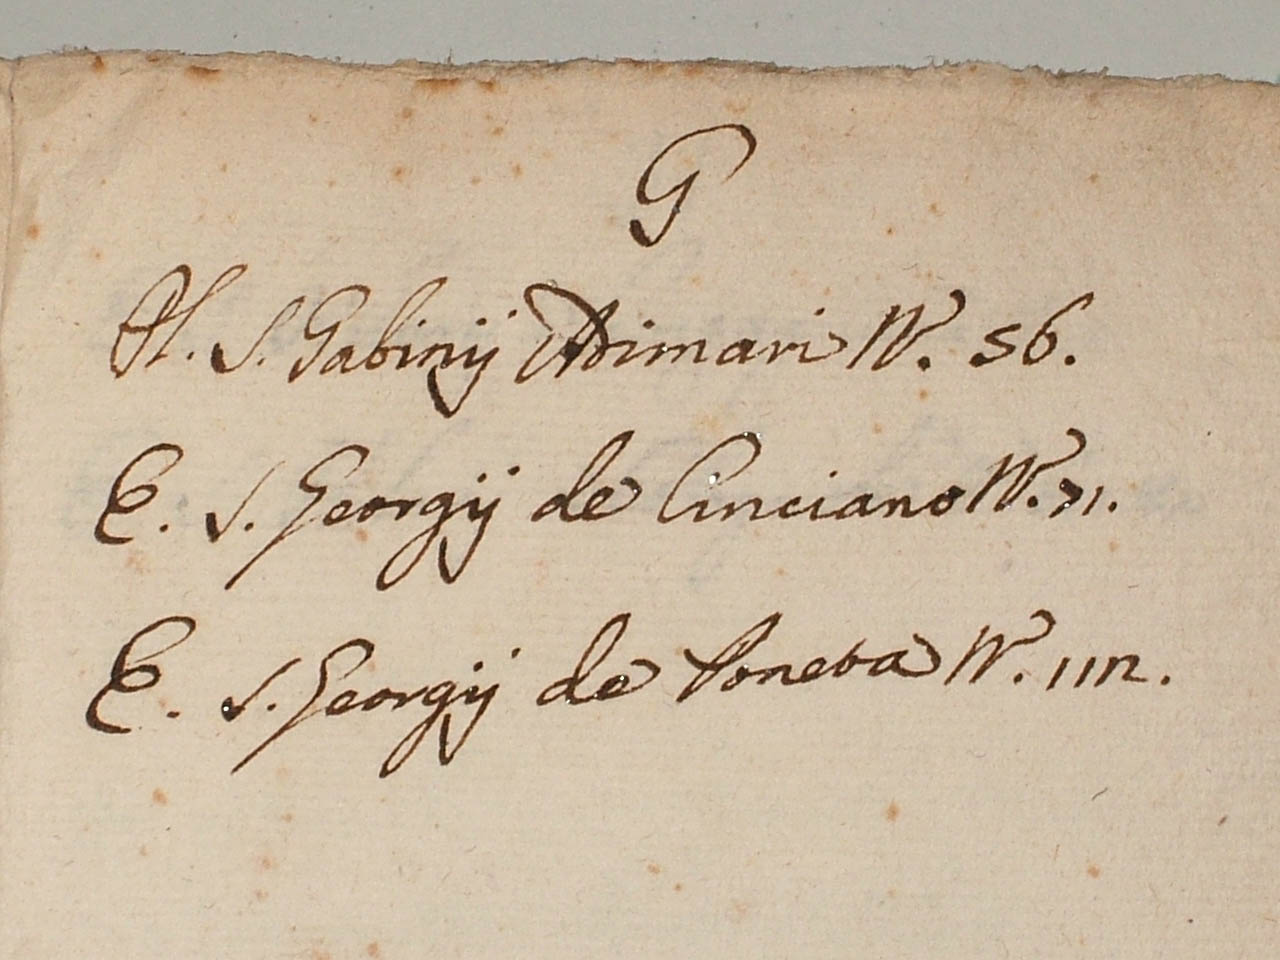 G
A. S. Gabinij Adimari N. 56.
E. S. Georgij de Cinciano N. 71.
E. S. Georgij de Soneba N. 112.